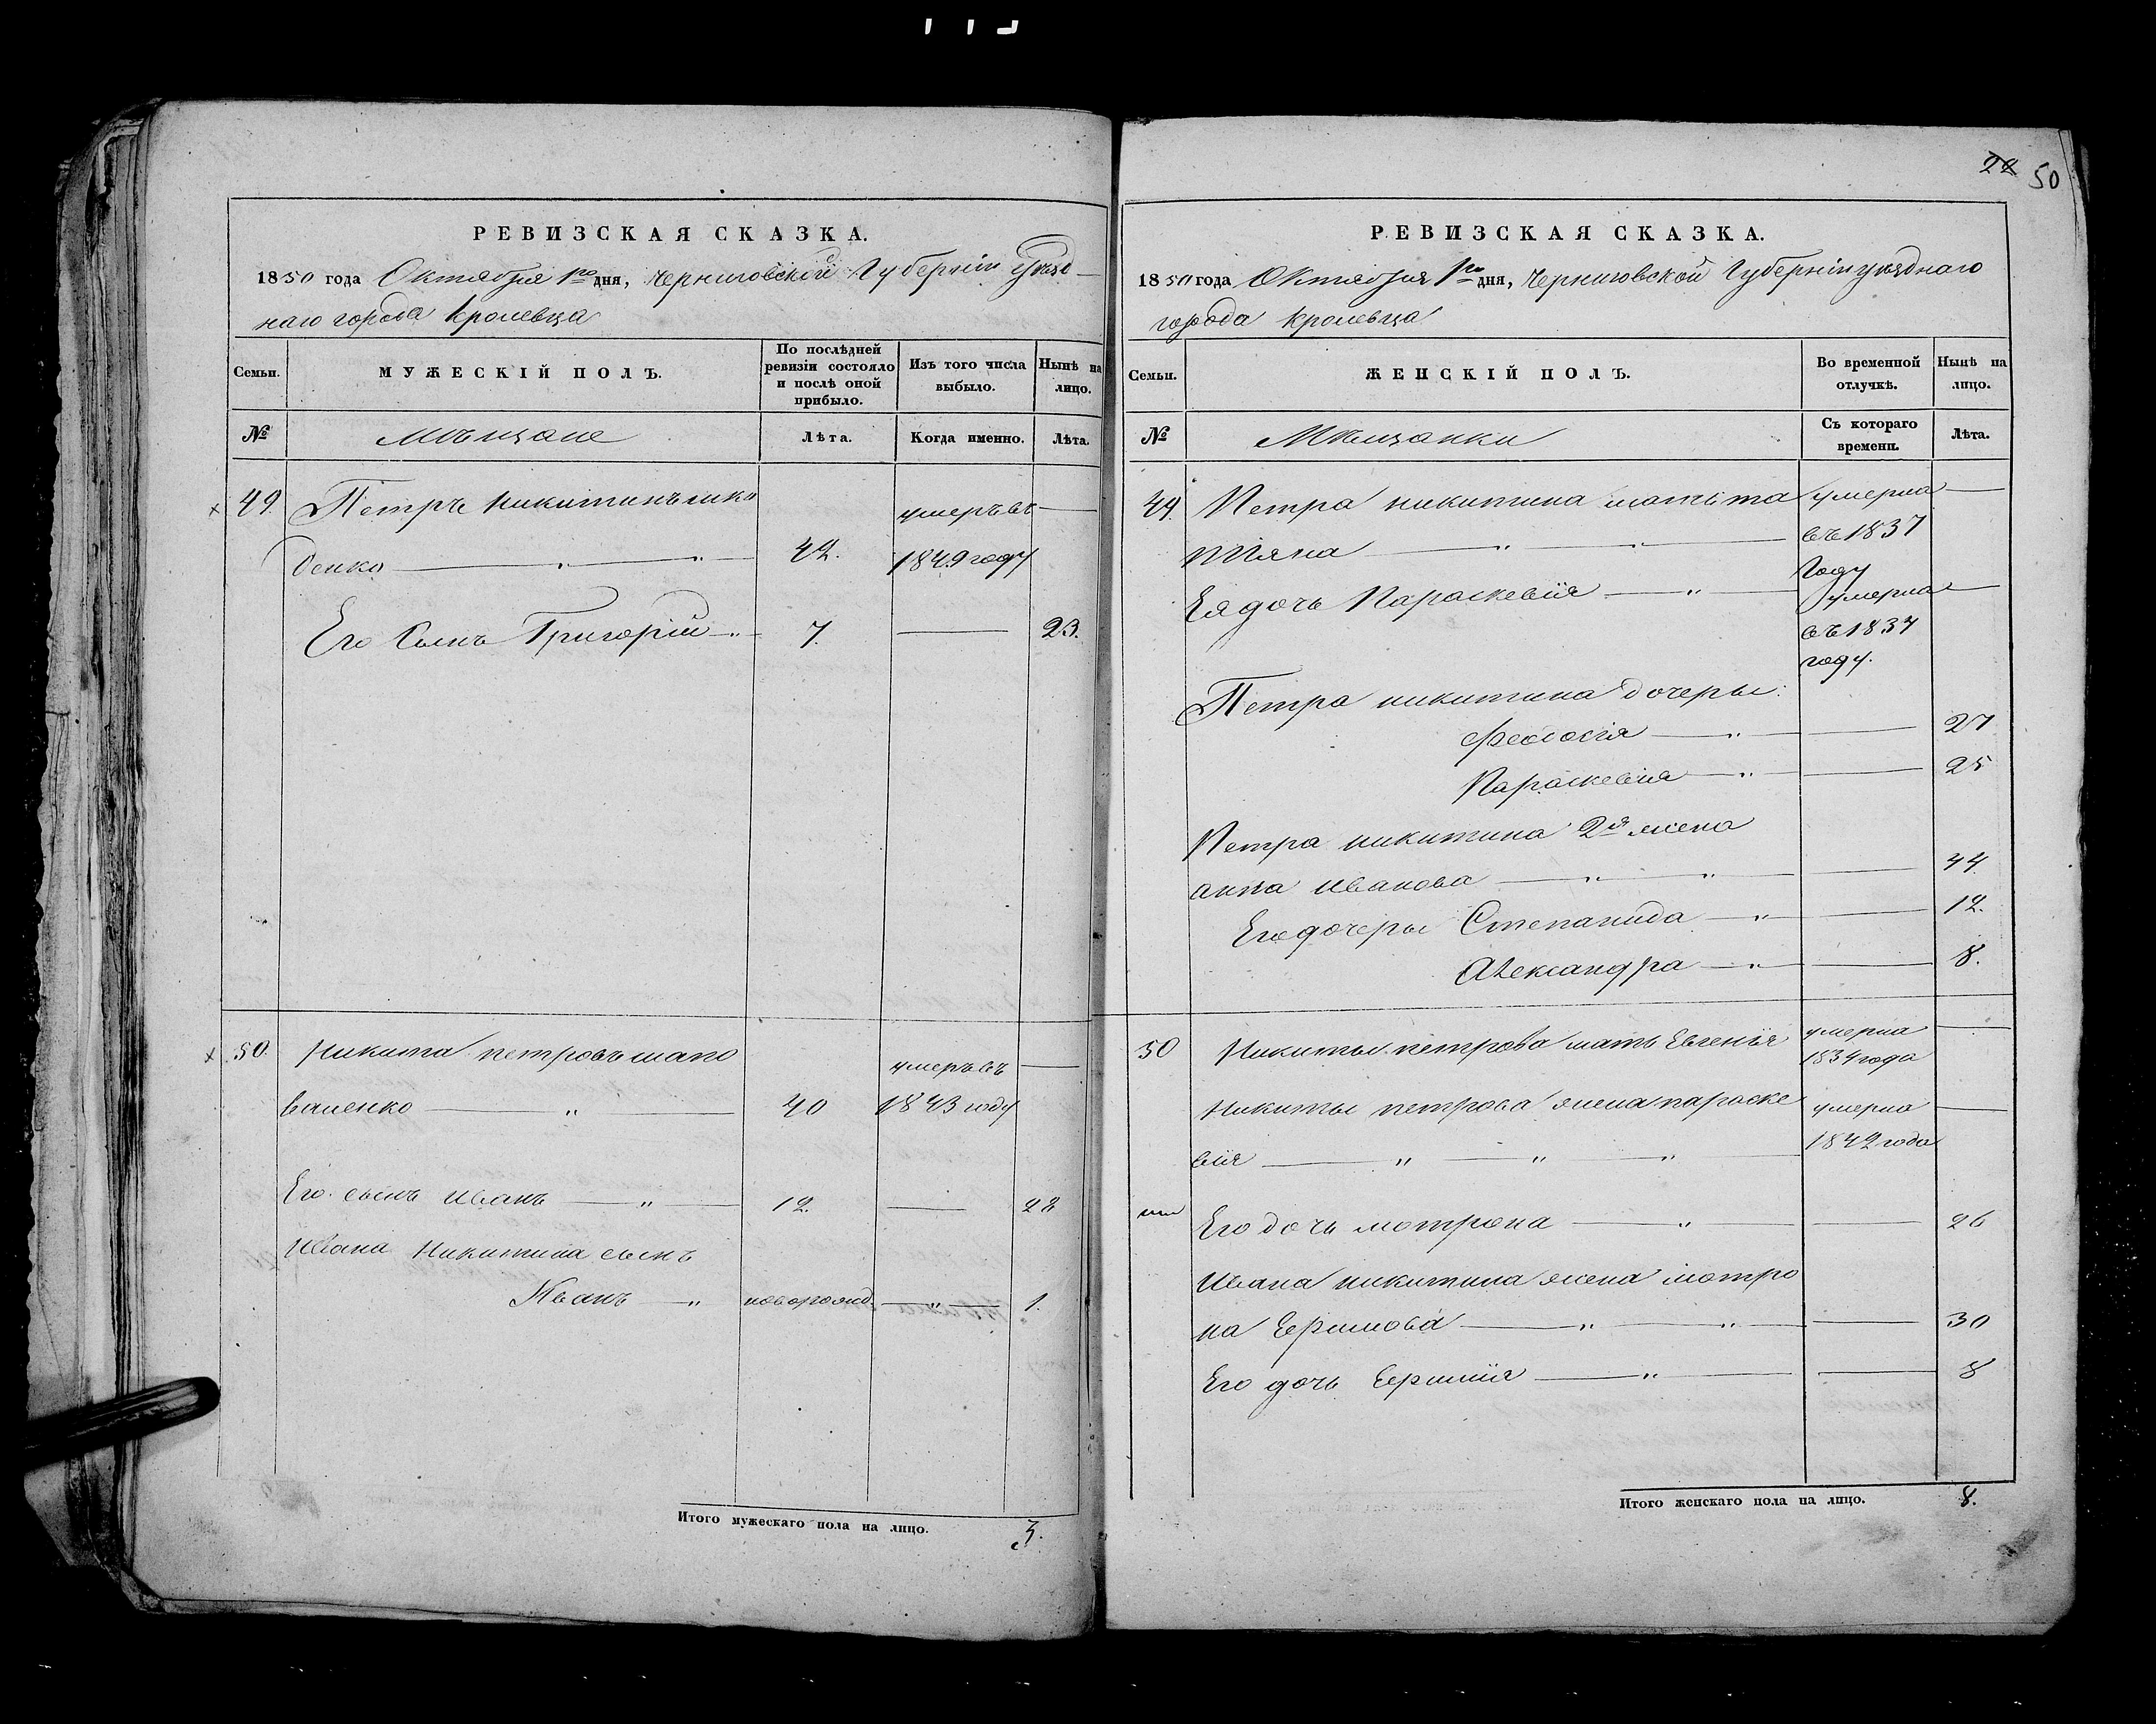 РЕВИЗСКАЯ СКАЗКА.
1850 года Октября 1го дня, Черниговской Губернiи уѣзд
наго города Кролевца
Семьи.
МУЖЕСКIЙ ПОЛЪ.
По послѣдней ревизiи состояло и послѣ оной прибыло.
Изъ того числа выбыло.
Нынѣ на лицо.
№
Мѣщане
Лѣта.
Когда именно.
Лѣта.
49. Петръ Никитинъ
денко 42. умеръ въ 1849 году —
Его Сынъ Григорiй 7. — 23.
50. Никита петровъ шапо
валенко 40 умеръ въ 1843 году —
Его сынъ Иванъ 12. — 28
Ивана Никитина сынъ
Иванъ новорожд. — 1.
Итого мужескаго пола на лицо. 3.
22 50
РЕВИЗСКАЯ СКАЗКА.
1850 года Октября 1го дня, Черниговской Губернiи уѣзднаго
города Кролевца
Семьи.
ЖЕНСКIЙ ПОЛЪ.
Во временной отлучкѣ.
Нынѣ на лицо.
№
Мѣщанки
Съ котораго времени.
Лѣта.
49. Петра никитина мать та умерла —
тiяна въ 1837 Году
Ея дочь Параскевiя умерла въ 1837 году. —
Петра никитина дочеры:
Феодосiя — 27
Параскевiя — 25
Петра никитина 2я жена
анна иванова — 44
Его дочеры Степанида — 12.
Александра — 8.
50 Никиты петрова мать Евгенiя умерла 1834 года —
Никиты петрова жена параске умерла —
вiя 1842 года
Его дочь мотрона — 26
Ивана никитина жена мотро
на Ефимова — 30
Его дочь Ефимiя — 8
Итого женскаго пола на лицо. 8.